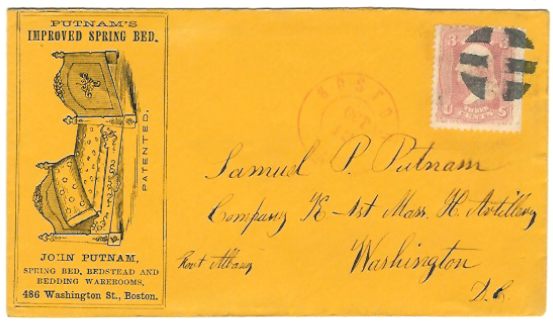 PUTNAM'S
IMPROVED SPRING BED.
PATENTED.
JOHN PUTNAM,
SPRING BED, BEDSTEAD AND
BEDDING WAREROOMS,
486 Washington St., Boston.
3 3
U S
THREE
CENTS
Samuel P. Putnam
Company K 1st Mass. H. Artillery
Fort Albany
Washington
D. C.